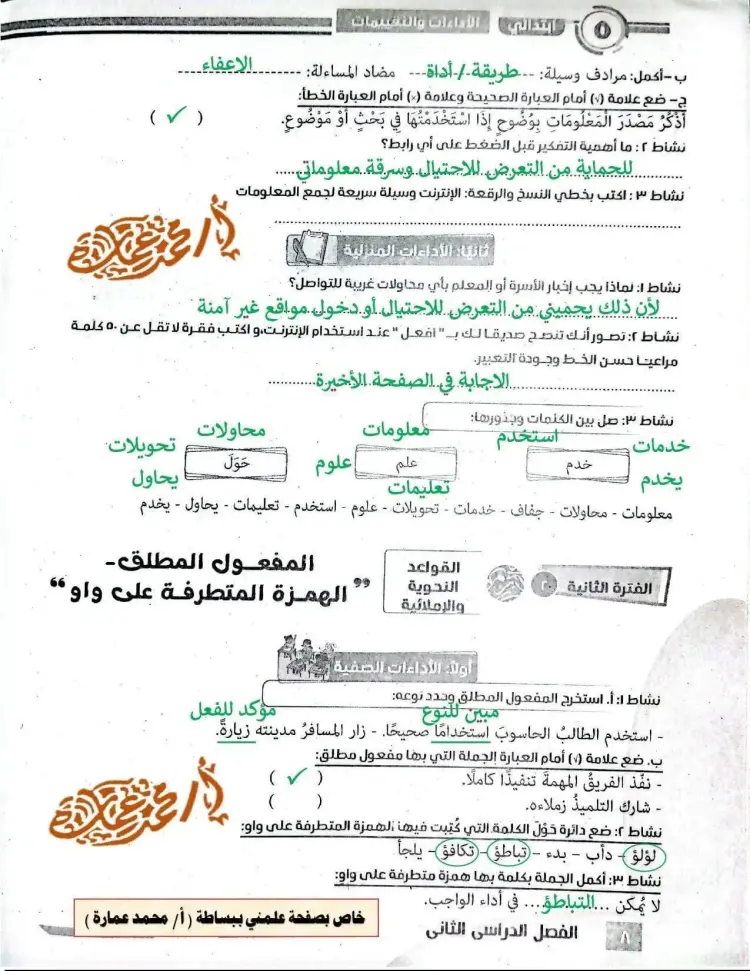 ٥ ابتدائي الأداءات والتقييمات
ب-أكمل: مرادف وسيلة: طريقة / أداة مضاد المساءلة: الاعفاء
ج- ضع علامة (√) أمام العبارة الصحيحة وعلامة (×) أمام العبارة الخطأ:
أَذْكُرُ مَصْدَرَ الْمَعْلُومَاتِ بِوُضُوحٍ إِذَا اسْتَخْدَمْتُهَا فِي بَحْثٍ أَوْ مَوْضُوعٍ. ( ✓ )
نشاط ٢: ما أهمية التفكير قبل الضغط على أي رابط؟
للحماية من التعرض للاحتيال وسرقة معلوماتي
نشاط ٣: اكتب بخطي النسخ والرقعة: الإنترنت وسيلة سريعة لجمع المعلومات
ثانيًا: الأداءات المنزلية
أ/ محمد عمارة
نشاط ١: لماذا يجب إخبار الأسرة أو المعلم بأي محاولات غريبة للتواصل؟
لأن ذلك يحميني من التعرض للاحتيال أو دخول مواقع غير آمنة
نشاط ٢: تصور أنك تنصح صديقا لك بـ " افعل " عند استخدام الإنترنت، واكتب فقرة لا تقل عن ٥٠ كلمة
مراعيا حسن الخط وجودة التعبير.
الاجابة في الصفحة الأخيرة
نشاط ٣: صل بين الكلمات وجذورها:
خدمات استخدم معلومات محاولات تحويلات
خدم علم علوم حَوَلَ
يخدم تعليمات يحاول
معلومات - محاولات - جفاف - خدمات - تحويلات - علوم - استخدم - تعليمات - يحاول - يخدم
الفترة الثانية ٢٠
القواعد النحوية والإملائية
المفعول المطلق-
"الهمزة المتطرفة على واو"
أولًا: الأداءات الصفية
نشاط ١: أ. استخرج المفعول المطلق وحدد نوعه:
مبين للنوع مؤكد للفعل
- استخدم الطالبُ الحاسوبَ استخدامًا صحيحًا. - زار المسافرُ مدينته زيارةً.
ب. ضع علامة (√) أمام العبارة الجملة التي بها مفعول مطلق:
- نفّذ الفريقُ المهمةَ تنفيذًا كاملًا. ( ✓ )
- شارك التلميذُ زملاءه. ( )
أ/ محمد عمارة
نشاط ٢: ضع دائرة حَوْلَ الكلمة التي كُتِبت فيها الهمزة المتطرفة على واو:
لؤلؤ - دأب - بدء - تباطؤ - تكافؤ - يلجأ
نشاط ٣: أكمل الجملة بكلمة بها همزة متطرفة على واو:
لا يُمكن ...التباطؤ... في أداء الواجب.
خاص بصفحة علمني ببساطة ( أ/ محمد عمارة )
٨ الفصل الدراسى الثانى